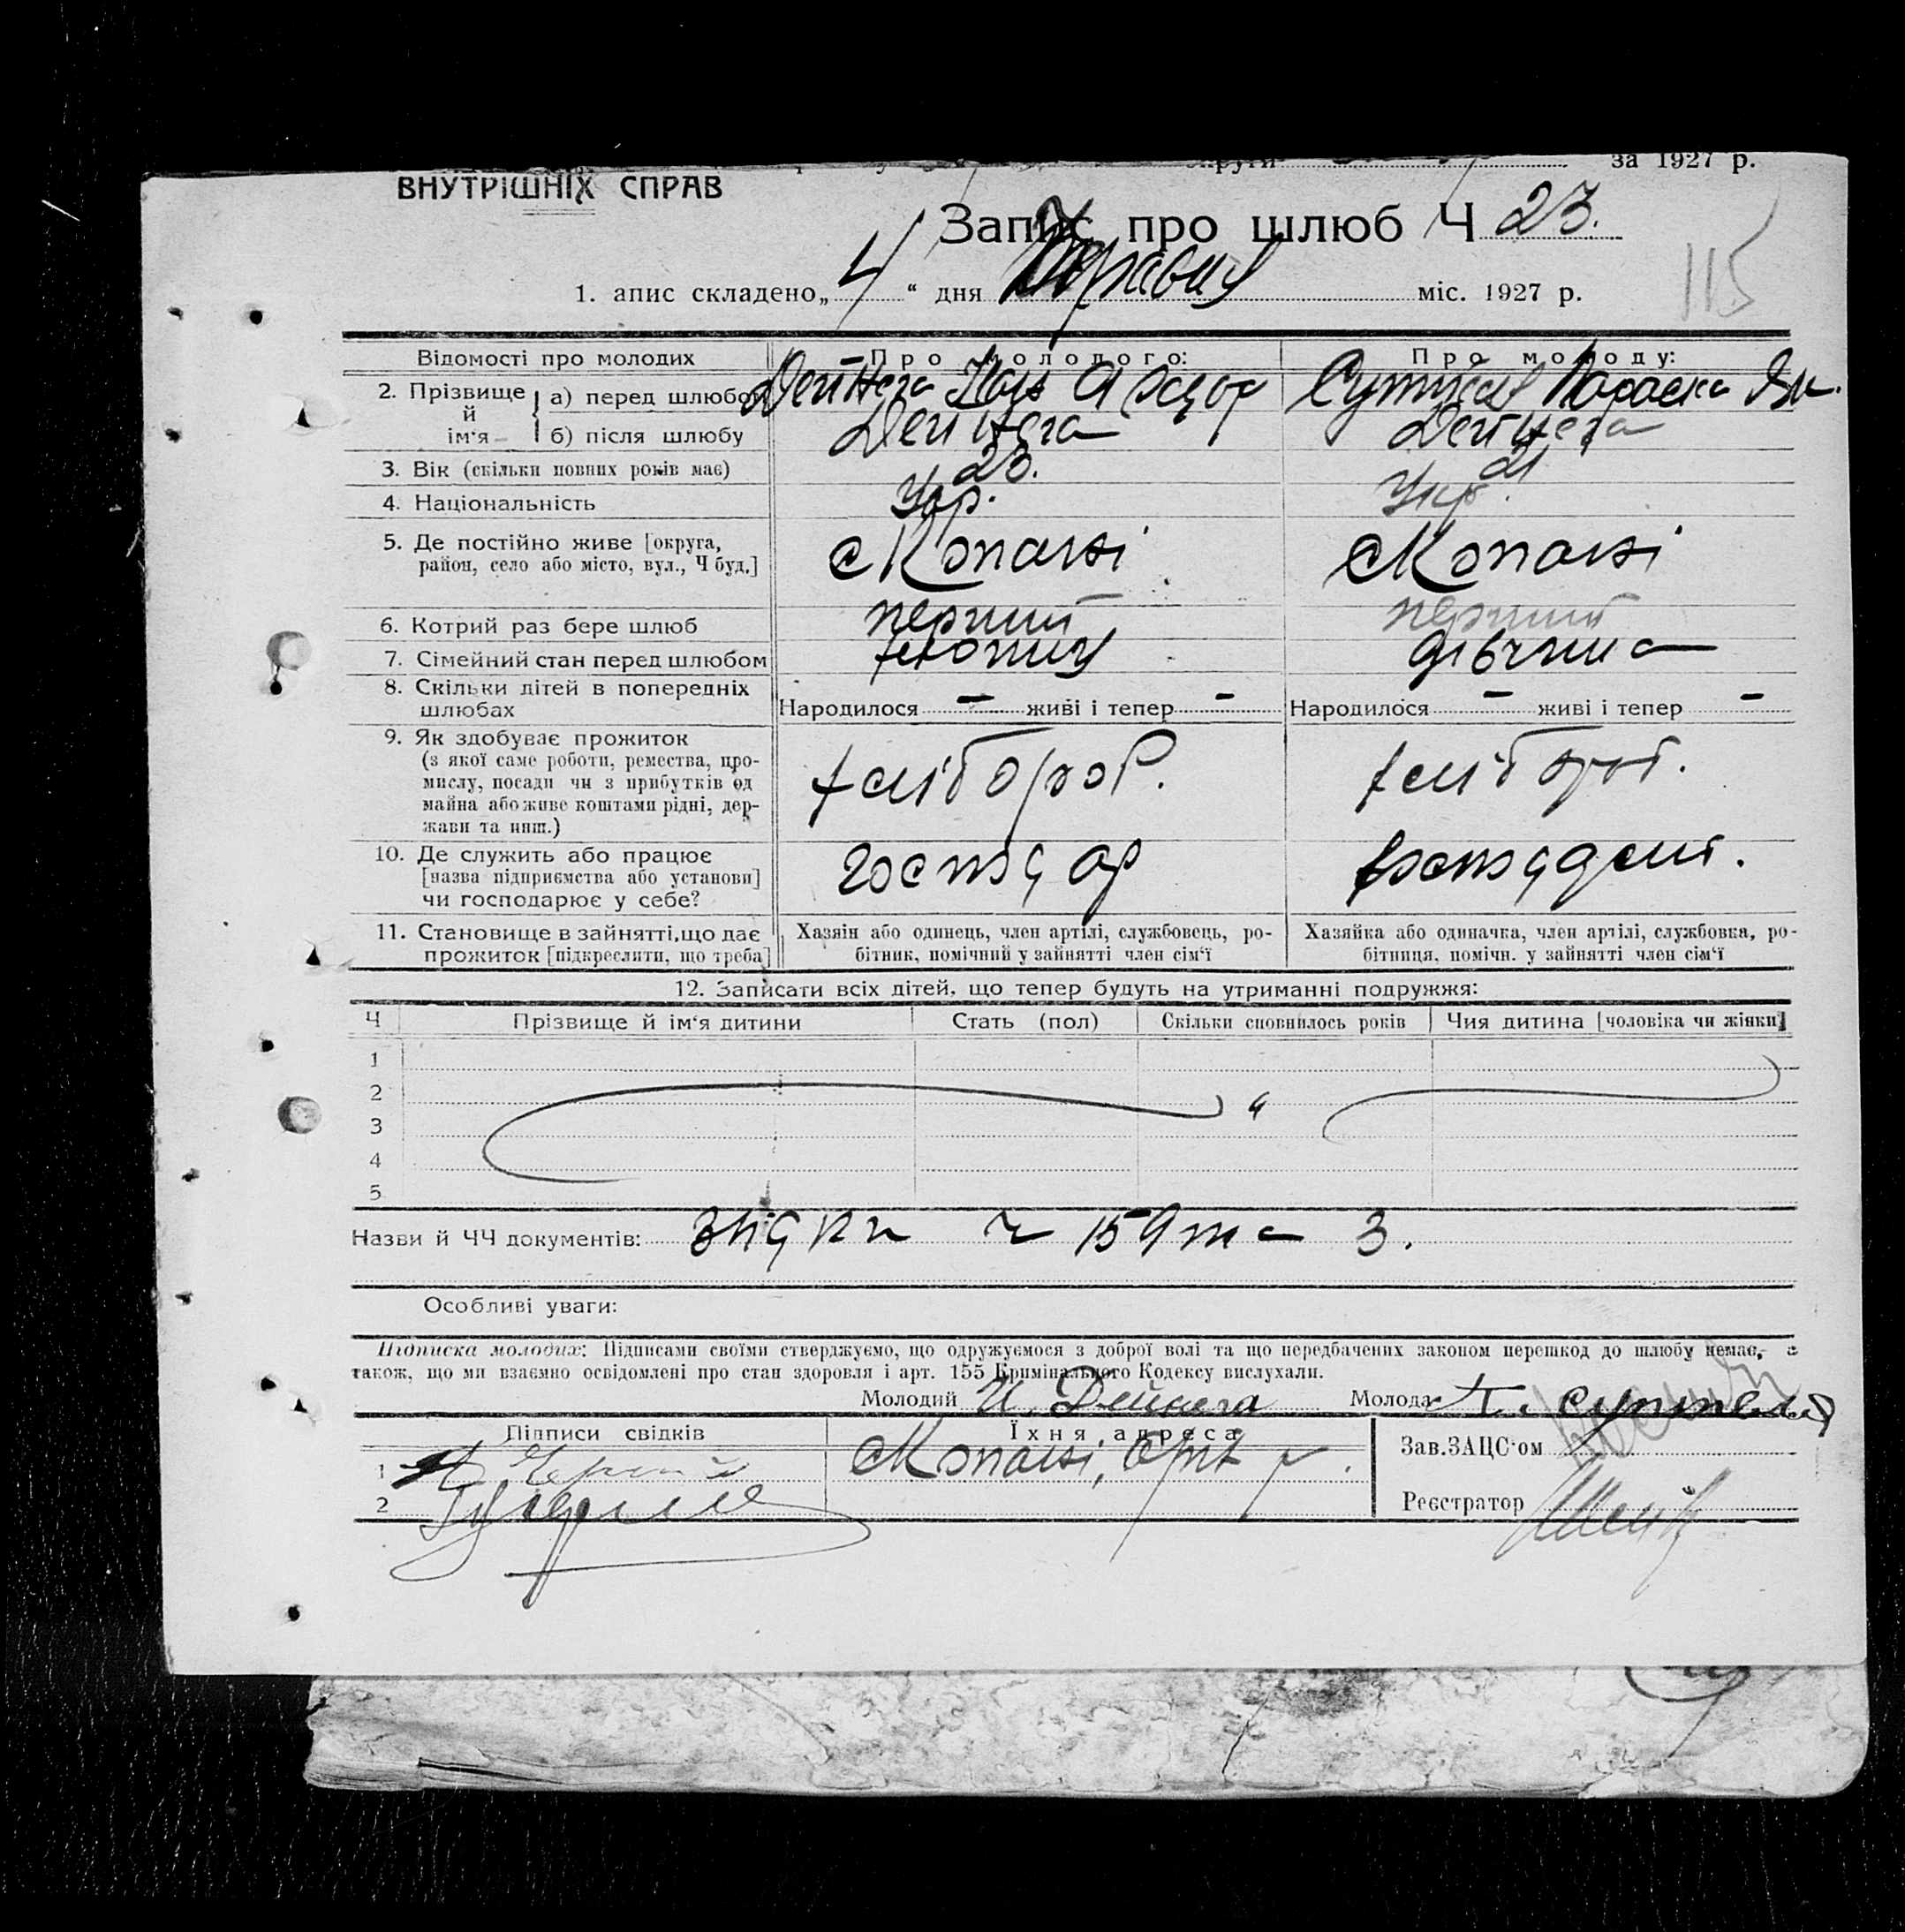 за 1927 р.
ВНУТРІШНІХ СПРАВ
Запис про шлюб Ч 23.
115
1. апис складено „4“ дня Червня міс. 1927 р.
Відомості про молодих
Про молодого:
Про молоду:
2. Прізвище й ім‘я
а) перед шлюбом
Дейнега Іван
Параска Як.
б) після шлюбу
Дейнега
Дейнега
3. Вік (скільки повних років має)
23.
21
4. Національність
Укр.
Укр.
5. Де постійно живе [округа, район, село або місто, вул., Ч буд.]
с Копані
с Копані
6. Котрий раз бере шлюб
перший
перший
7. Сімейний стан перед шлюбом
дівчина
8. Скільки дітей в попередніх шлюбах
Народилося — живі і тепер —
Народилося — живі і тепер —
9. Як здобуває прожиток
(з якої саме роботи, ремества, про-
мислу, посади чи з прибутків од
майна або живе коштами рідні, дер-
жави та инш.)
хлібороб.
хлібороб.
10. Де служить або працює
[назва підприємства або установи]
чи господарює у себе?
11. Становище в зайнятті, що дає
прожиток [підкреслити, що треба]
Хазяін або одинець, член артілі, службовець, ро-
бітник, помічний у зайнятті член сім‘ї
Хазяйка або одиначка, член артілі, службовка, ро-
бітниця, помічн. у зайнятті член сім‘ї
12. Записати всіх дітей, що тепер будуть на утриманні подружжя:
Ч
Прізвище й ім‘я дитини
Стать (пол)
Скільки сповнилось років
Чия дитина [чоловіка чи жінки]
1
2
3
4
5
Назви й ЧЧ документів: ч 159 та 3.
Особливі уваги:
Підписка молодих: Підписами своїми стверджуємо, що одружуємося з доброї волі та що передбачених законом перешкод до шлюбу немає, а
також, що ми взаємно освідомлені про стан здоровля і арт. 155 Кримінального Кодексу вислухали.
Молодий И. Дейнега Молода П.
Підписи свідків
Їхня адреса
Зав.ЗАЦС‘ом
1
с Копані,
2
Реєстратор